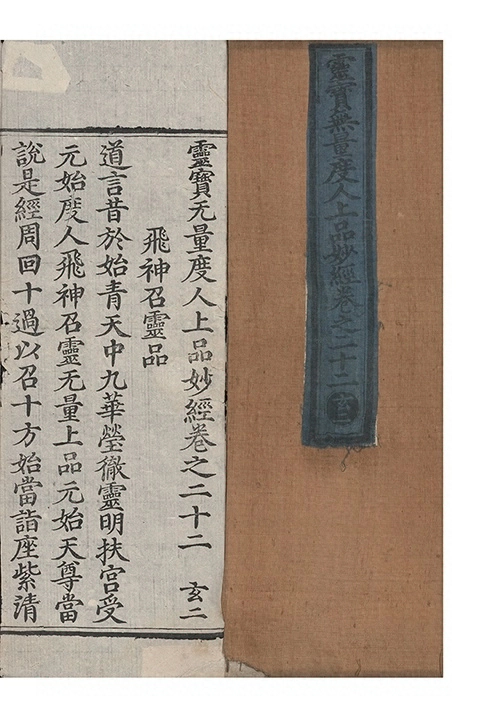 靈寶無量度人上品妙經卷之二十二 玄二
靈寶无量度人上品妙經卷之二十二 玄二
飛神召靈品
道言昔於始青天中九華瑩徹靈明扶宫受
元始度人飛神召靈无量上品元始天尊當
說是經周回十過以召十方始當詣座紫清